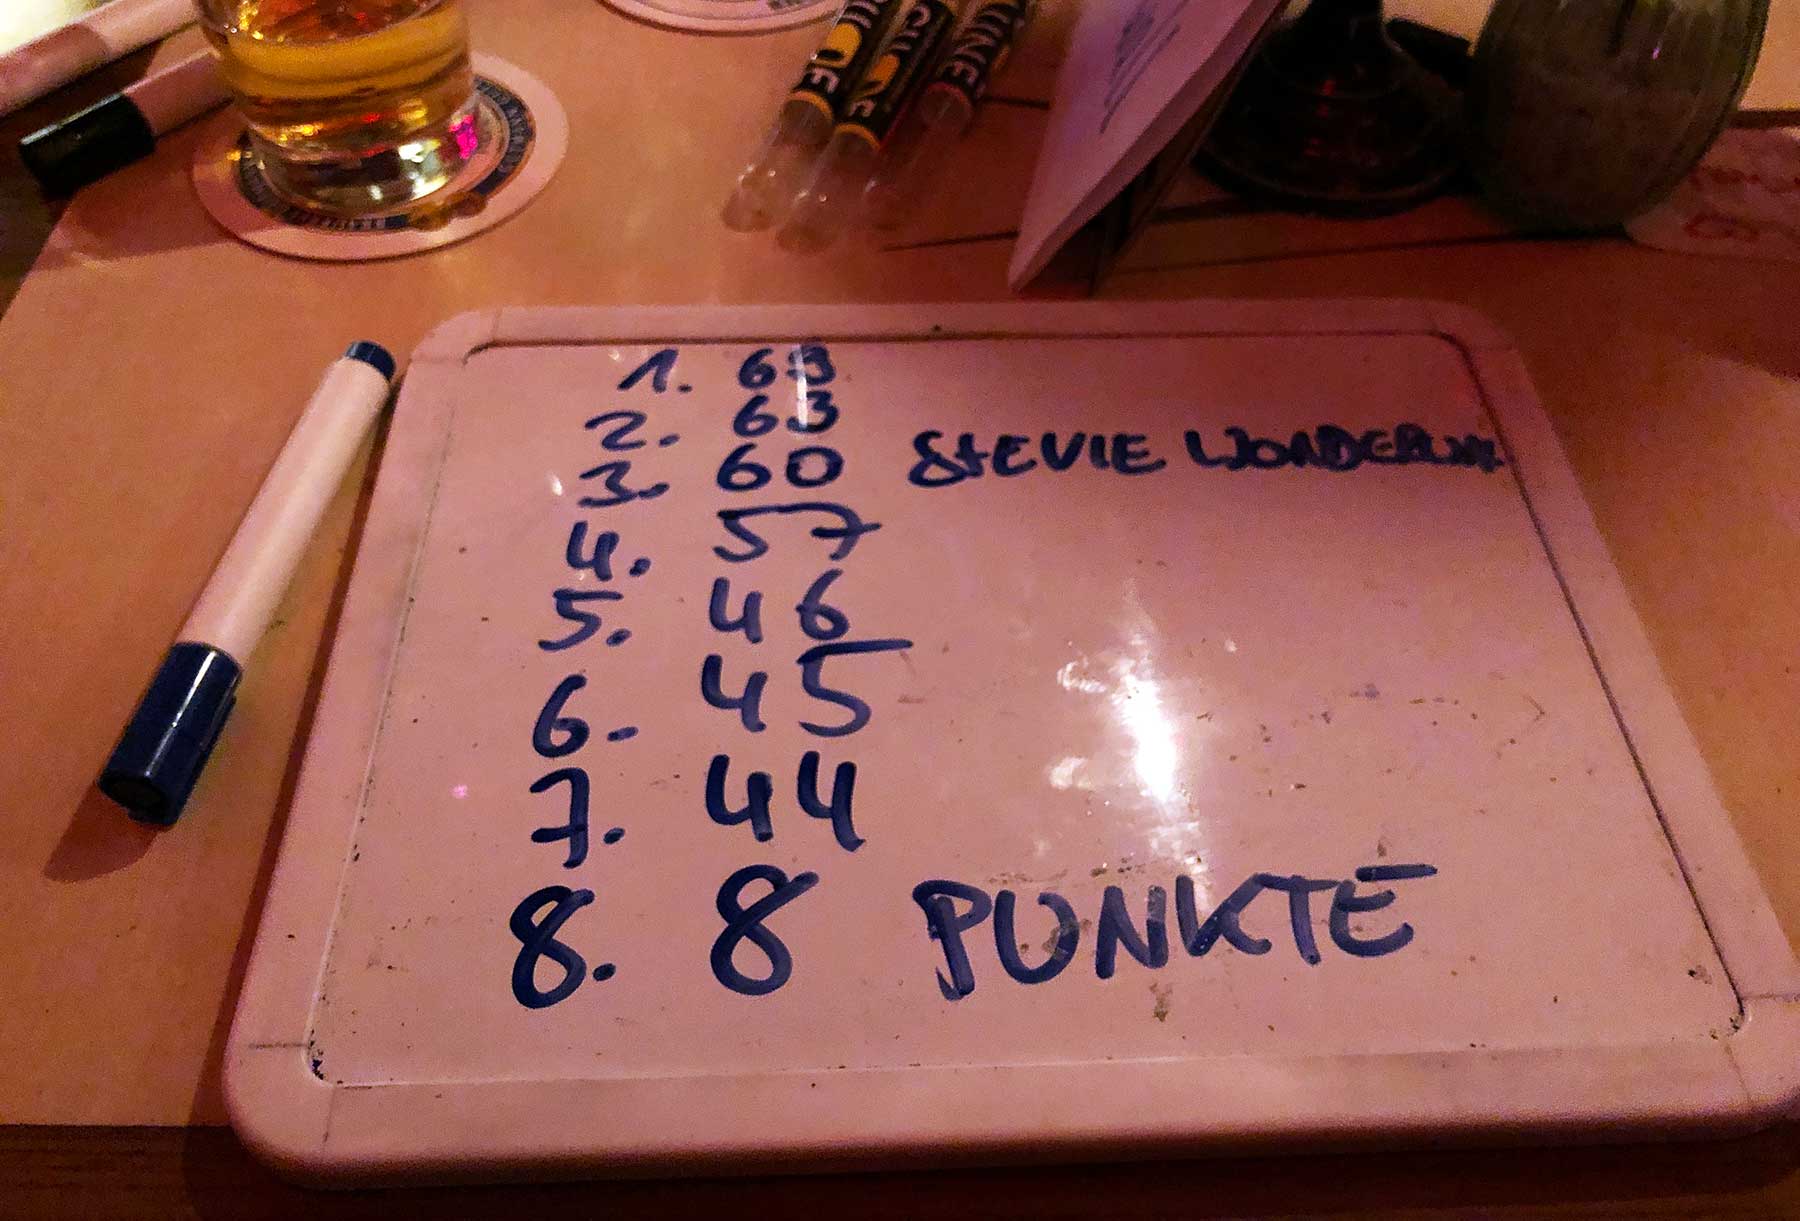 1. 69
2. 63
3. 60 STEVIE
4. 57
5. 46
6. 45
7. 44
8. 8 PUNKTE